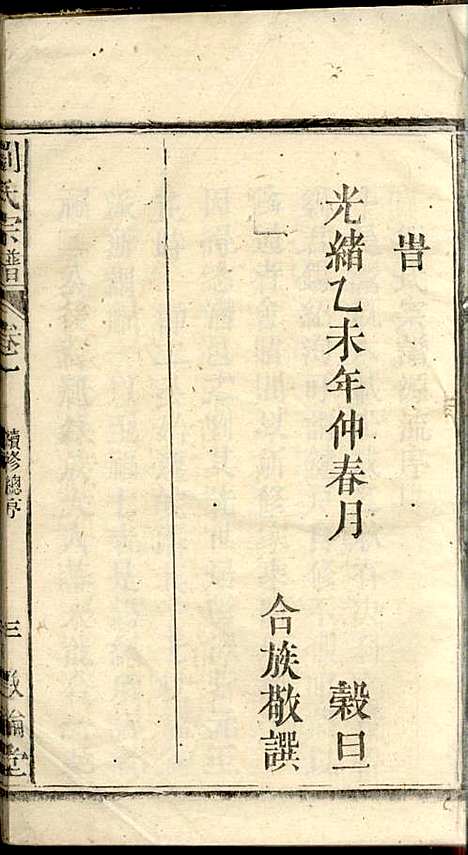 旹
光緒乙未年仲春月 穀旦
合族敬譔
劉氏宗譜
卷一
續修總序
三
敦倫堂